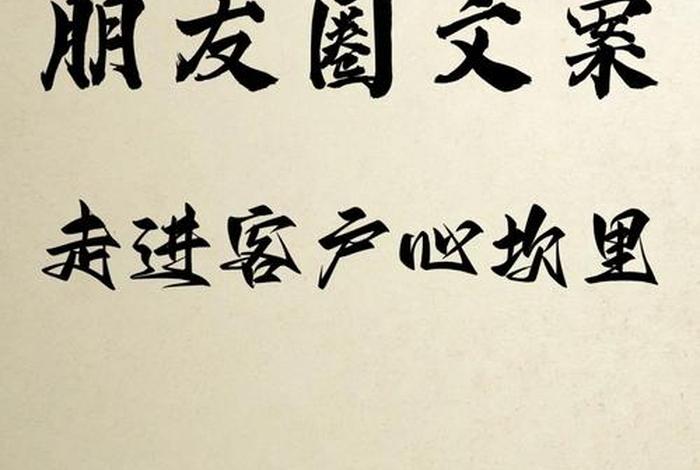 朋友圈文案
走进客户心坎里